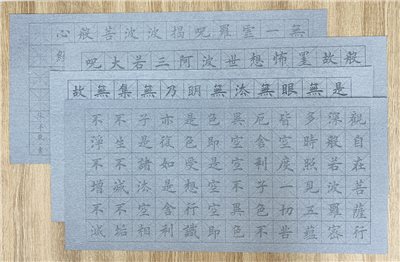 無一虛羅呪揭波波菩般心經
般故罣怖想世波阿三若大呪
是無眼無法無明乃無集無故
觀自在菩薩行
深般若波羅蜜
多時照見五蘊
皆空度一切苦
厄舍利子色不
異空空不異色
色即是空空即
是色受想行識
亦復如是舍利
子是諸法空相
不生不滅不垢
不淨不增不減